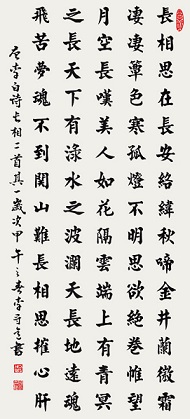 長相思在長安絡緯秋啼金井蘭微霜
凄凄簟色寒孤燈不明思欲絕卷帷望
月空長嘆美人如花隔雲端上有青冥
之長天下有淥水之波瀾天長地遠魂
飛苦夢魂不到関山難長相思摧心肝
李白詩长相二首其一歲次甲午之春李書